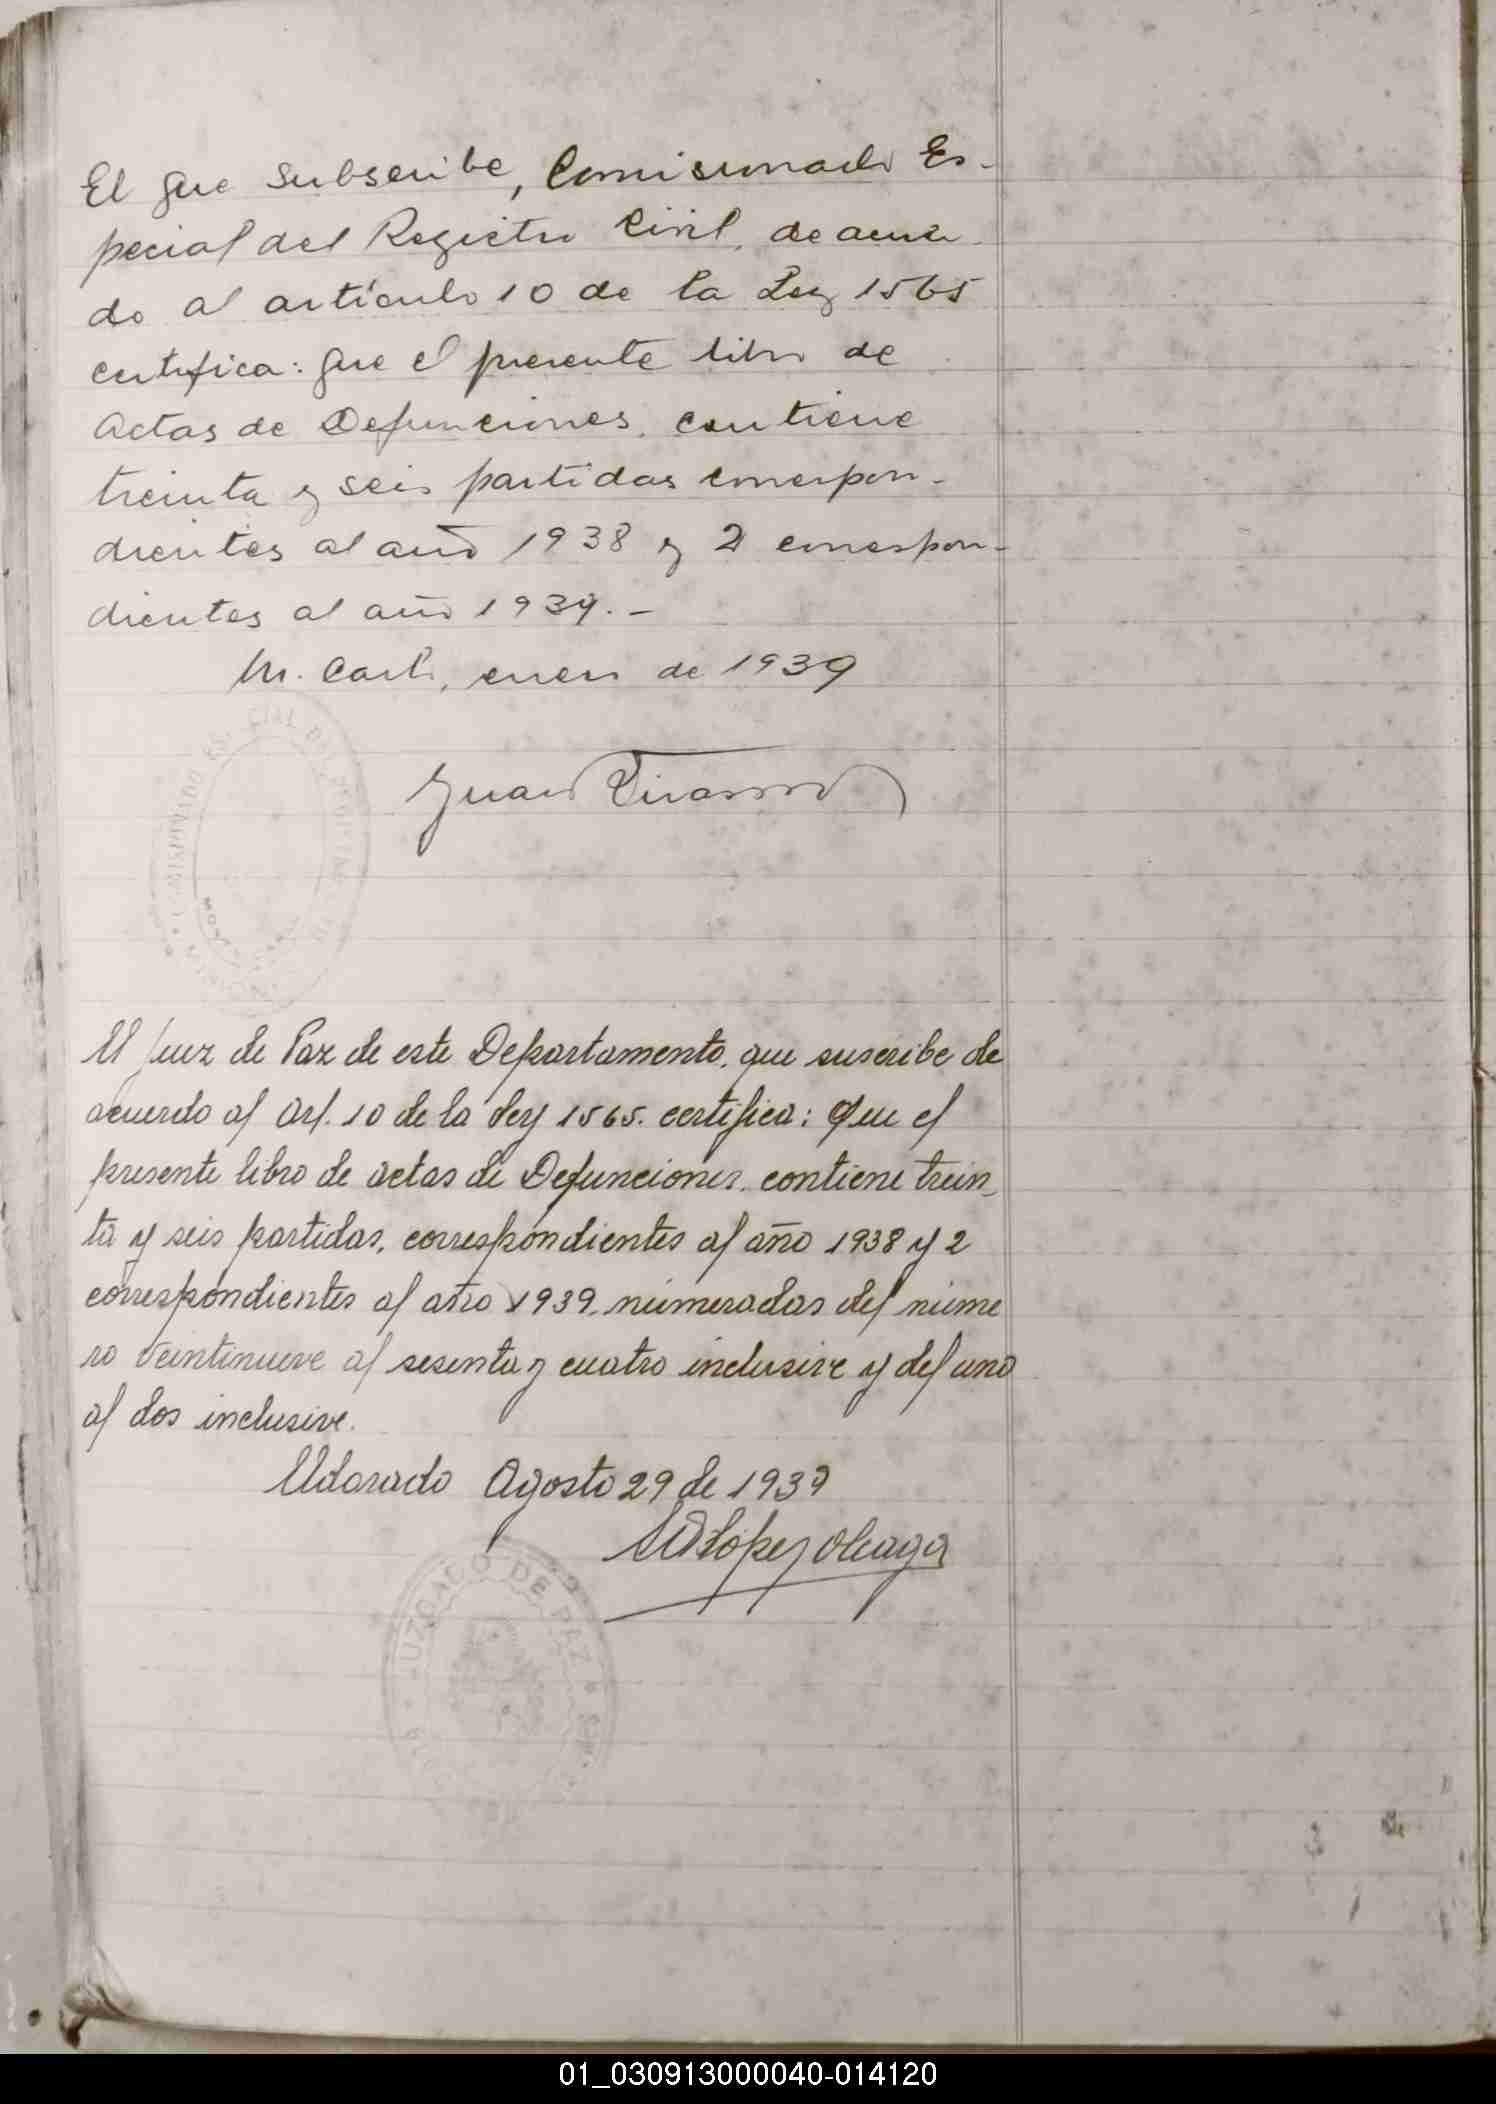 El que subscribe, Comisionado Es-
pecial del Registro Civil, de acuer-
do al artículo 10 de la Ley 1565
certifica: que el presente libro de
actas de Defunciones, contiene
treinta y seis partidas correspon-
dientes al año 1938 y 2 correspon-
dientes al año 1939.-
M. Carlo, enero de 1939
Juan
JUZGADO DE PAZ
El Juez de Paz de este Departamento, que suscribe de
acuerdo al Art. 10 de la Ley 1565. certifica: Que el
presente libro de actas de Defunciones, contiene trein-
ta y seis partidas, correspondientes al año 1938 y 2
correspondientes al año 1939, númeradas del núme
ro veintinueve al sesenta y cuatro inclusive y del uno
al dos inclusive.
Eldorado Agosto 29 de 1939
López Oleaga
01_030913000040-014120